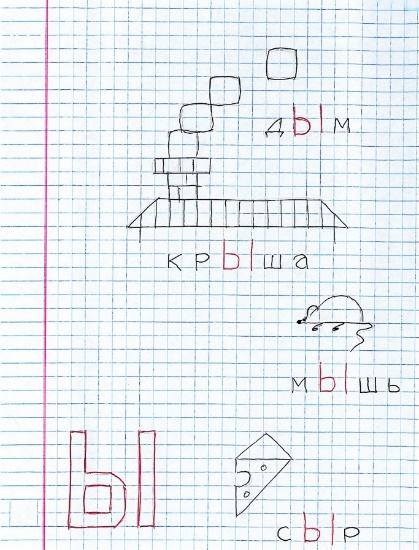 дым
крыша
мышь
Ы
сыр